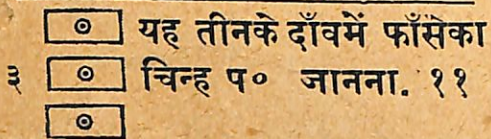 यह तीनके दाँवमें फाँसेका
३ चिन्ह प० जानना. ११